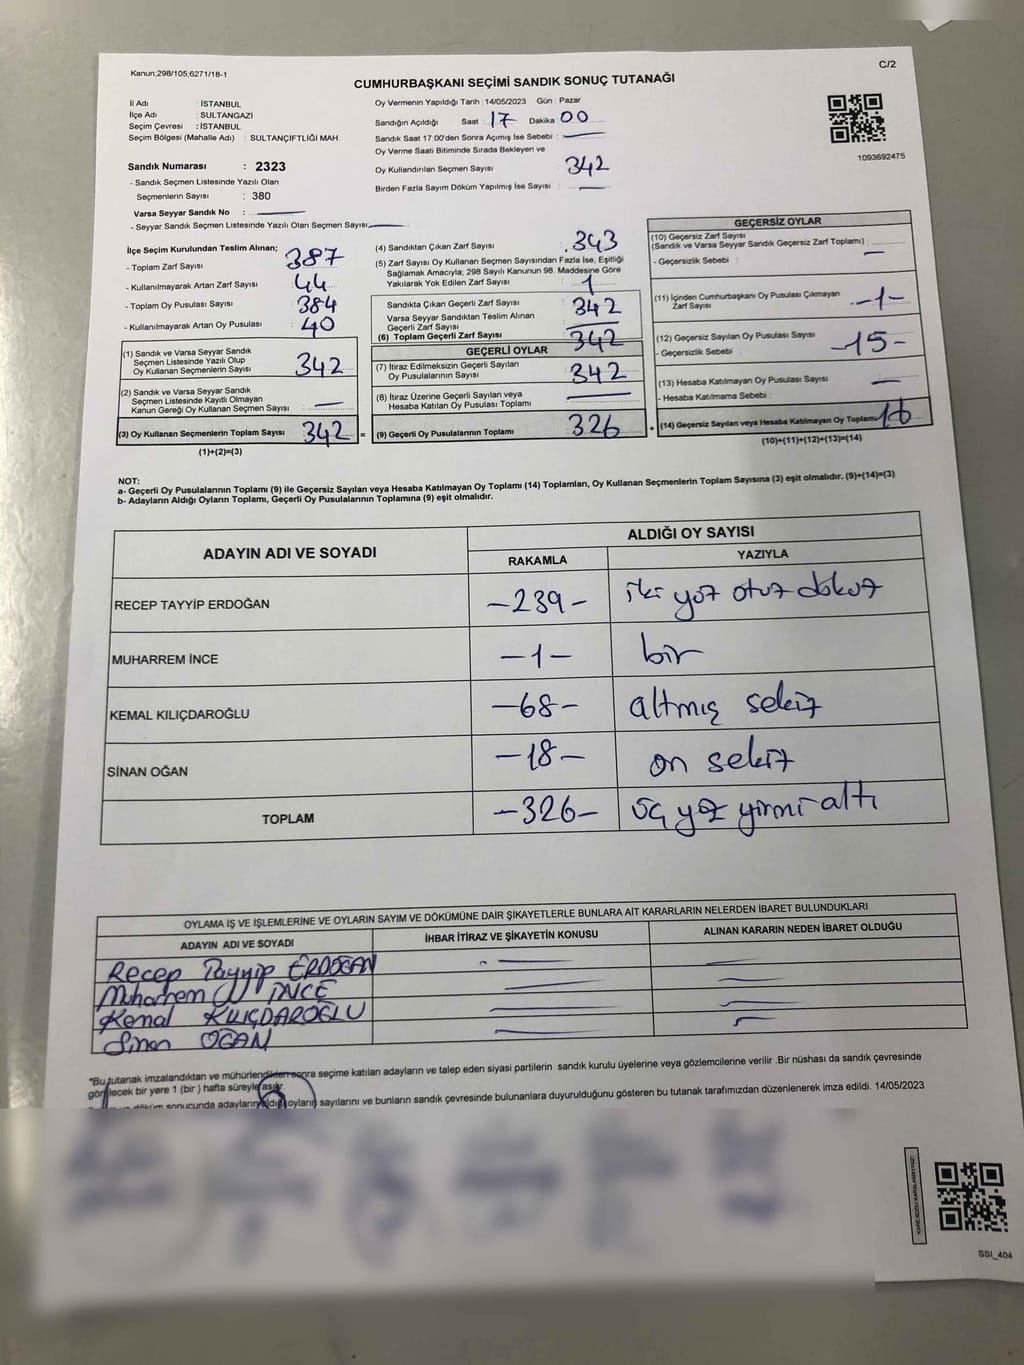 Kanun;298/105;6271/18-1
C/2
CUMHURBAŞKANI SEÇİMİ SANDIK SONUÇ TUTANAĞI
İl Adı : İSTANBUL
İlçe Adı : SULTANGAZİ
Seçim Çevresi : İSTANBUL
Seçim Bölgesi (Mahalle Adı) : SULTANÇİFTLİĞİ MAH.
Sandık Numarası : 2323
- Sandık Seçmen Listesinde Yazılı Olan
Seçmenlerin Sayısı : 380
Varsa Seyyar Sandık No :
- Seyyar Sandık Seçmen Listesinde Yazılı Olan Seçmen Sayısı:
Oy Vermenin Yapıldığı Tarih : 14/05/2023 Gün : Pazar
Sandığın Açıldığı Saat : 17 Dakika : 00
Sandık Saat 17:00'den Sonra Açımış İse Sebebi :
Oy Verme Saati Bitiminde Sırada Bekleyen ve
Oy Kullandırılan Seçmen Sayısı : 342
Birden Fazla Sayım Döküm Yapılmış İse Sayısı :
1093692475
İlçe Seçim Kurulundan Teslim Alınan;
- Toplam Zarf Sayısı : 387
- Kullanılmayarak Artan Zarf Sayısı : 44
- Toplam Oy Pusulası Sayısı : 384
- Kullanılmayarak Artan Oy Pusulası : 40
(1) Sandık ve Varsa Seyyar Sandık
Seçmen Listesinde Yazılı Olup
Oy Kullanan Seçmenlerin Sayısı : 342
(2) Sandık ve Varsa Seyyar Sandık
Seçmen Listesinde Kayıtlı Olmayan
Kanun Gereği Oy Kullanan Seçmen Sayısı :
(3) Oy Kullanan Seçmenlerin Toplam Sayısı : 342 =
(1)+(2)=(3)
(4) Sandıktan Çıkan Zarf Sayısı : 343
(5) Zarf Sayısı Oy Kullanan Seçmen Sayısından Fazla İse, Eşitliği
Sağlamak Amacıyla; 298 Sayılı Kanunun 98. Maddesine Göre
Yakılarak Yok Edilen Zarf Sayısı : 1
Sandıkta Çıkan Geçerli Zarf Sayısı : 342
Varsa Seyyar Sandıktan Teslim Alınan
Geçerli Zarf Sayısı :
(6) Toplam Geçerli Zarf Sayısı : 342
GEÇERLİ OYLAR
(7) İtiraz Edilmeksizin Geçerli Sayılan
Oy Pusulalarının Sayısı : 342
(8) İtiraz Üzerine Geçerli Sayılan veya
Hesaba Katılan Oy Pusulası Toplamı :
(9) Geçerli Oy Pusulalarının Toplamı : 326 +
GEÇERSİZ OYLAR
(10) Geçersiz Zarf Sayısı
(Sandık ve Varsa Seyyar Sandık Geçersiz Zarf Toplamı) :
- Geçersizlik Sebebi : —
(11) İçinden Cumhurbaşkanı Oy Pusulası Çıkmayan
Zarf Sayısı : -1-
(12) Geçersiz Sayılan Oy Pusulası Sayısı : -15-
- Geçersizlik Sebebi :
(13) Hesaba Katılmayan Oy Pusulası Sayısı : —
- Hesaba Katılmama Sebebi :
(14) Geçersiz Sayılan veya Hesaba Katılmayan Oy Toplamı : 16
(10)+(11)+(12)+(13)=(14)
NOT:
a- Geçerli Oy Pusulalarının Toplamı (9) ile Geçersiz Sayılan veya Hesaba Katılmayan Oy Toplamı (14) Toplamları, Oy Kullanan Seçmenlerin Toplam Sayısına (3) eşit olmalıdır. (9)+(14)=(3)
b- Adayların Aldığı Oyların Toplamı, Geçerli Oy Pusulalarının Toplamına (9) eşit olmalıdır.
ADAYIN ADI VE SOYADI ALDIĞI OY SAYISI
RAKAMLA YAZIYLA
RECEP TAYYİP ERDOĞAN -239- iki yüz otuz dokuz
MUHARREM İNCE -1- bir
KEMAL KILIÇDAROĞLU -68- altmış sekiz
SİNAN OĞAN -18- on sekiz
TOPLAM -326- üç yüz yirmi altı
OYLAMA İŞ VE İŞLEMLERİNE VE OYLARIN SAYIM VE DÖKÜMÜNE DAİR ŞİKAYETLERLE BUNLARA AİT KARARLARIN NELERDEN İBARET BULUNDUKLARI
ADAYIN ADI VE SOYADI İHBAR İTİRAZ VE ŞİKAYETİN KONUSU ALINAN KARARIN NEDEN İBARET OLDUĞU
Recep Tayyip ERDOĞAN
Muharrem İNCE
Kemal KILIÇDAROĞLU
Sinan OĞAN
*Bu tutanak imzalandıktan ve mühürlendikten sonra seçime katılan adayların ve talep eden siyasi partilerin sandık kurulu üyelerine veya gözlemcilerine verilir .Bir nüshası da sandık çevresinde
görülecek bir yere 1 (bir ) hafta süreyle asılır.
döküm sonucunda adayların aldığı oyların sayılarını ve bunların sandık çevresinde bulunanlara duyurulduğunu gösteren bu tutanak tarafımızdan düzenlenerek imza edildi. 14/05/2023
SSI_404